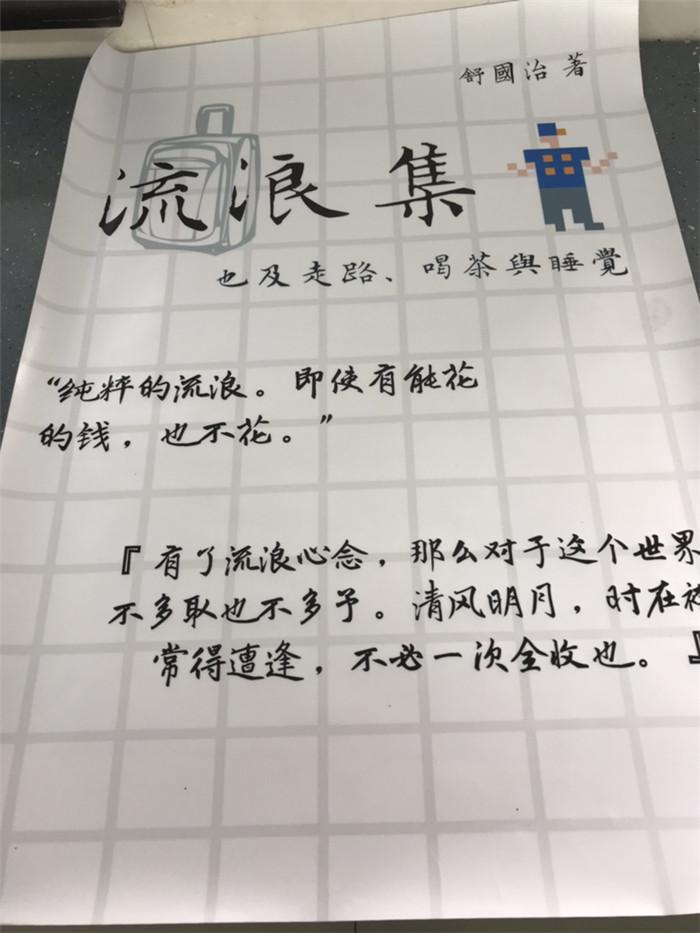 舒國治 著
流浪集
也及走路、喝茶與睡覺
“纯粹的流浪。即使有能花
的钱，也不花。”
『有了流浪心念，那么对于这个世界
不多取也不多予。清风明月，时在
常得遭逢，不必一次全收也。』